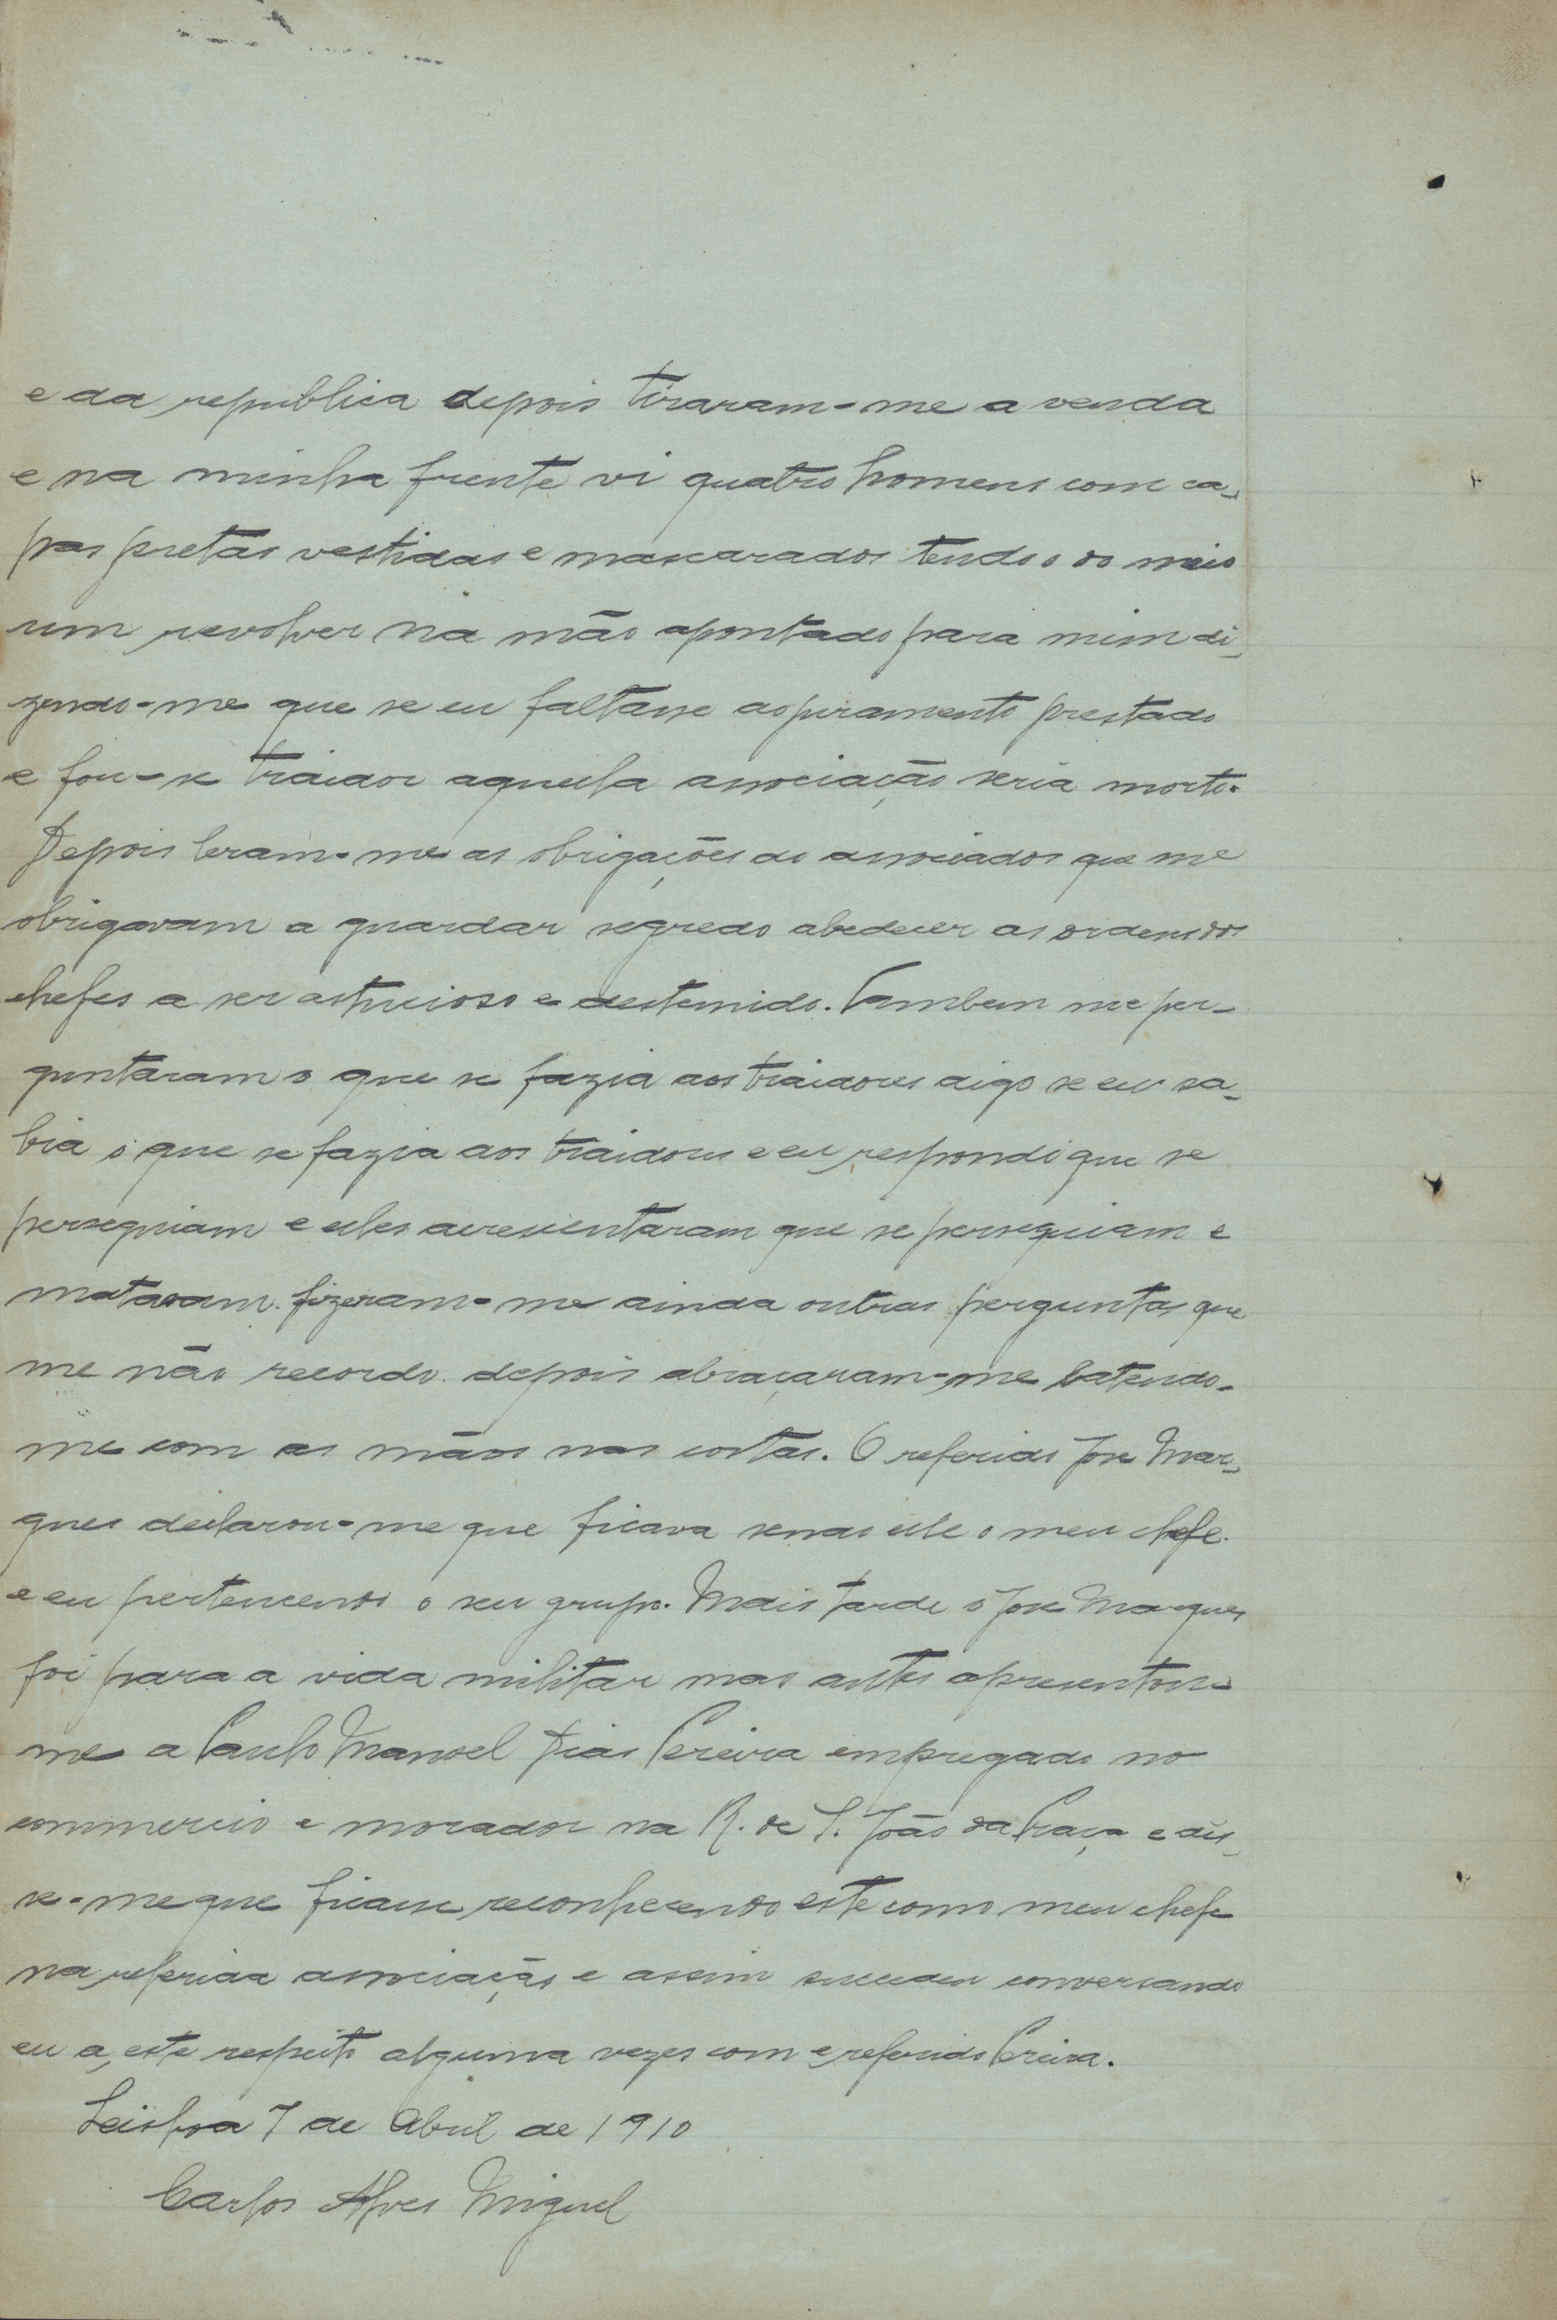 e da republica depois tiraram-me a venda
e na minha frente vi quatro homens com ca-
pas pretas vestidas e mascarados tendo o do meio
um revolver na mão apontado para mim di-
zendo-me que se eu faltasse ao juramento prestado
e fou-se traidor aquella associação seria morto.
Depois leram-me as obrigações do associados que me
obrigavam a guardar segredo abedecer as ordens dos
chefes a ser astucioso e destemido. Tambem me per-
guntaram o que se fazia aos traidores digo se eu sa-
bia o que se fazia aos traidores e eu respondi que se
perseguiam e elles acrescentaram que se perseguiam e
matavam. fizeram-me ainda outras perguntas que
me não recordo. depois abraçaram-me batendo-
me com as mãos nas costas. O referido José Mar-
ques declarou-me que ficava sendo elle o meu chefe.
e eu pertencendo o seu grupo. Mais tarde o José Marques
foi para a vida militar mas antes apresentou-
me a Paulo Manoel Dias Pereira empregado no
commercio e morador na R. de S. João da Praça e dis-
se-me que ficasse reconhecendo este como meu chefe
na referida associação e assim succedeu conversando
eu a este respeito alguma vezes com e referido Pereira.
Leisboa 7 de Abril de 1910
Carlos Alves Miguel